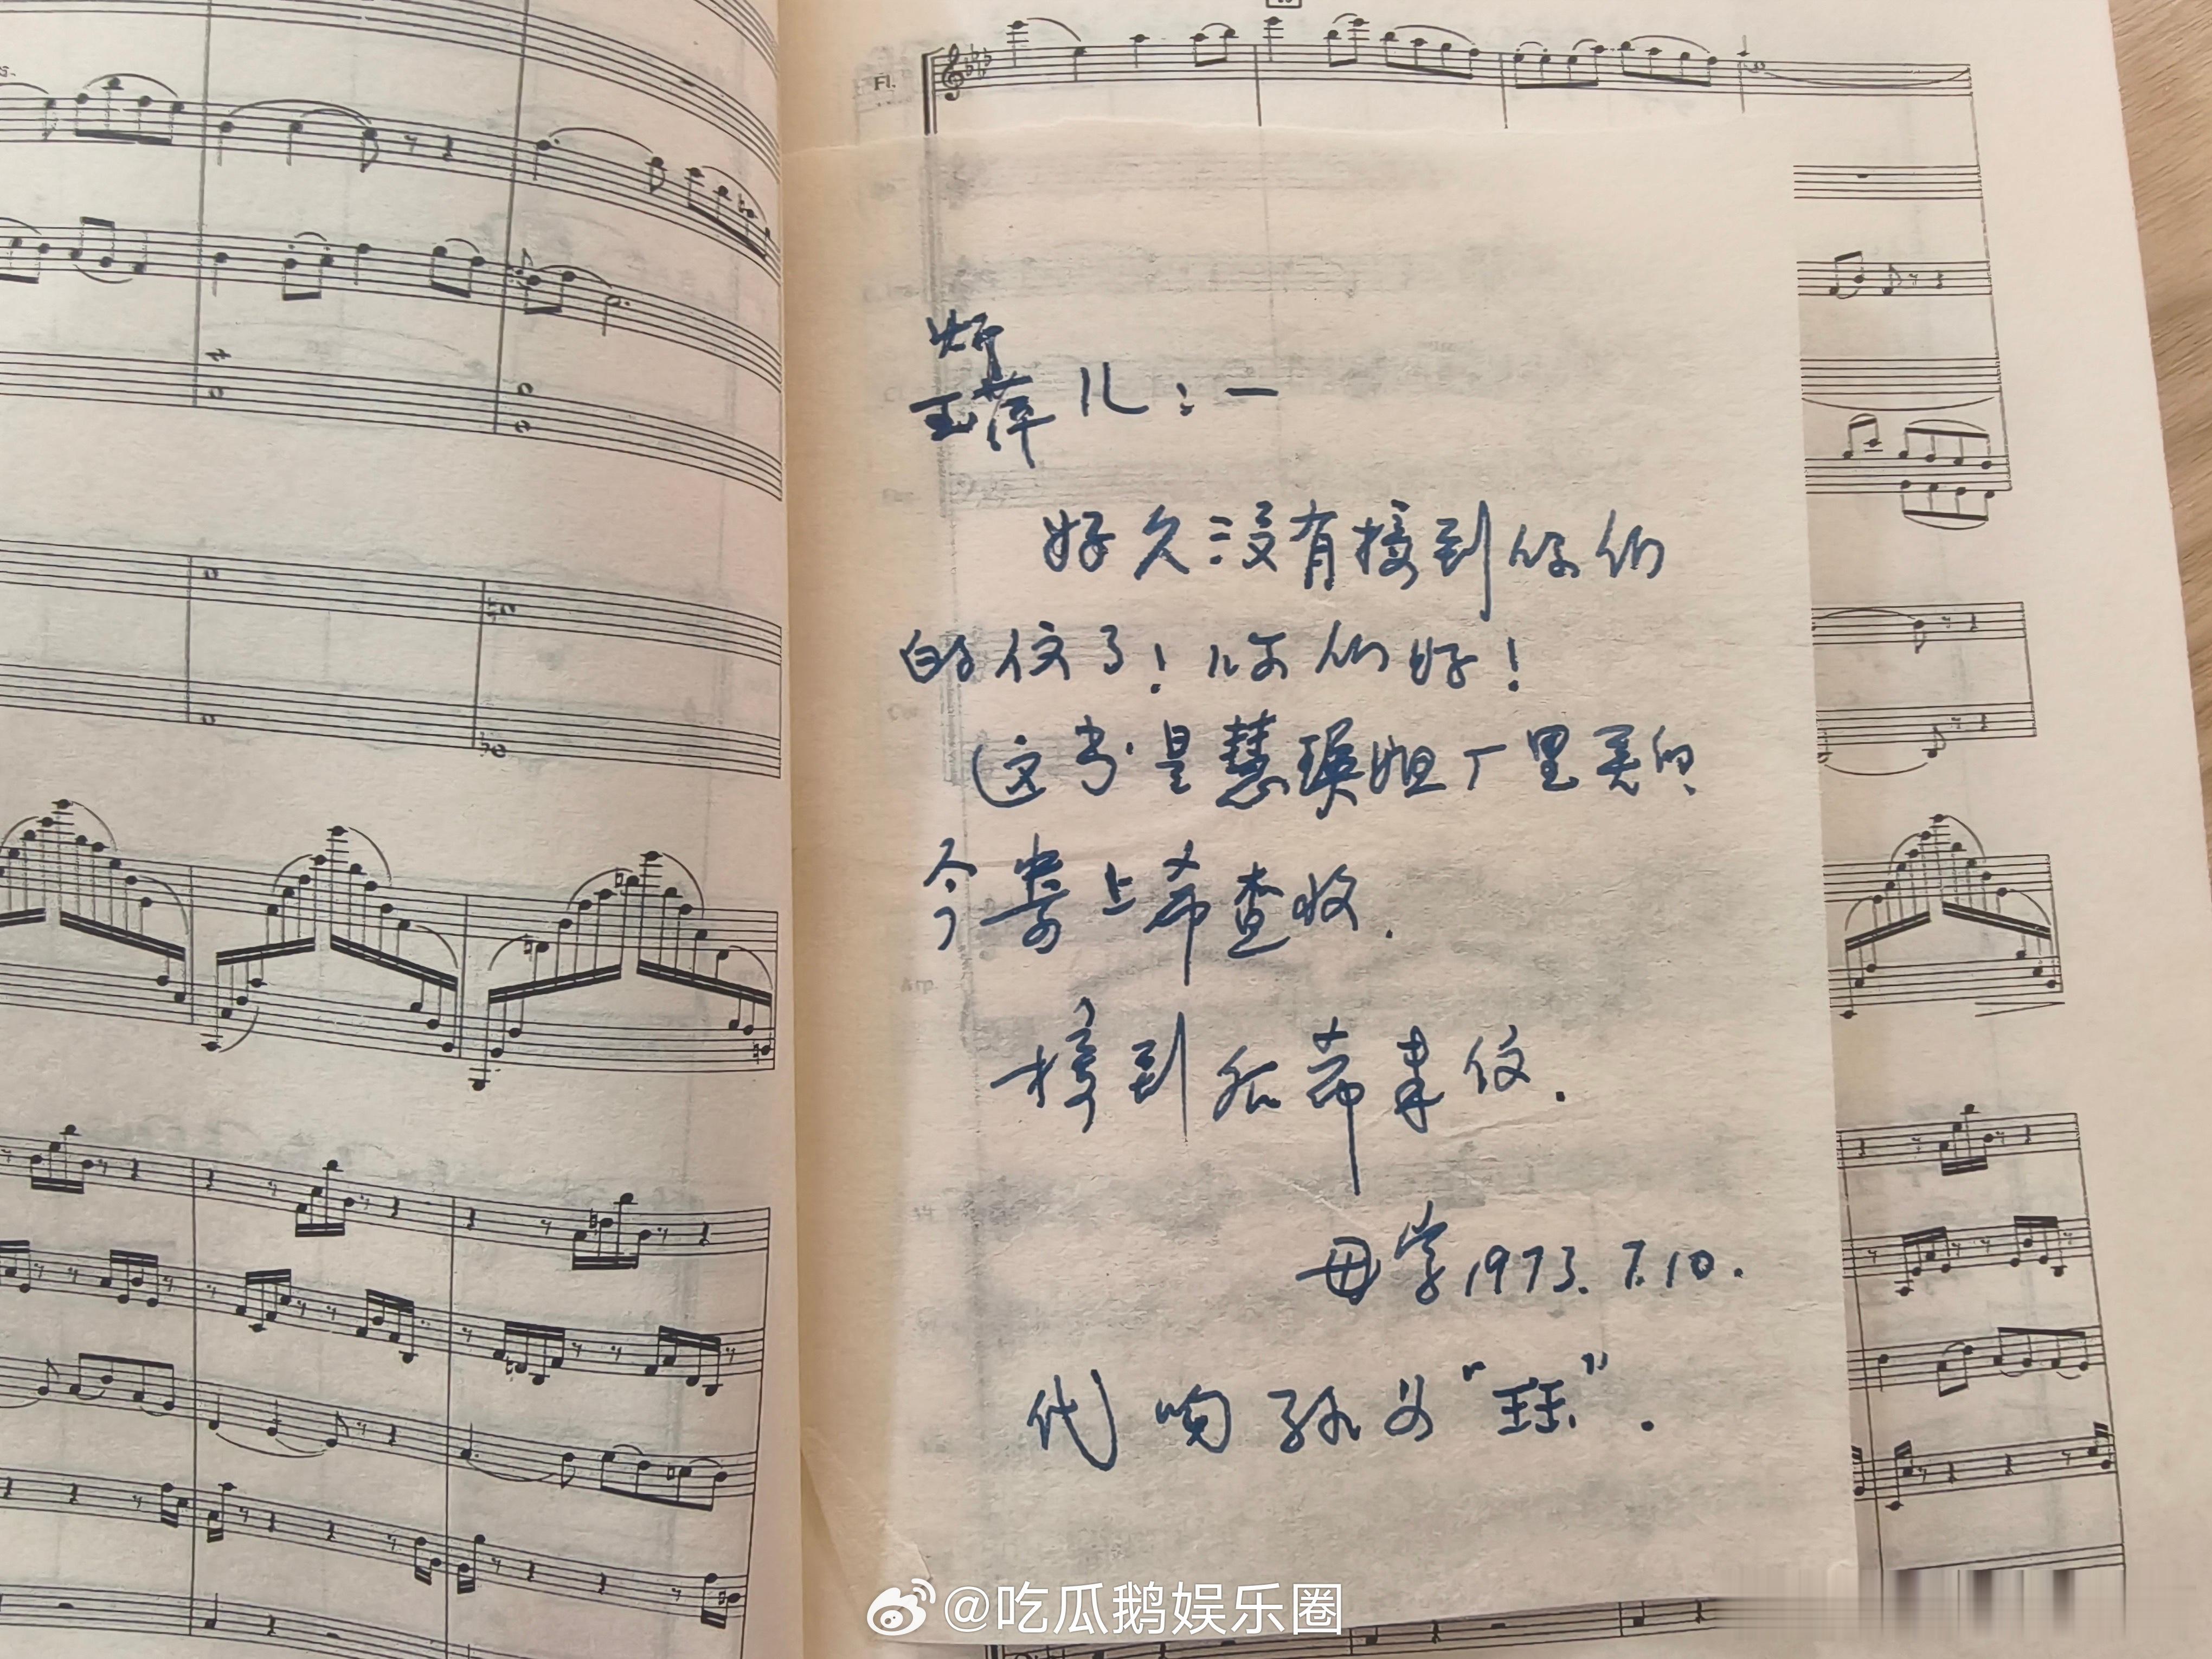 Fl.
玉萍 儿：一
好久没有接到你们
的信了！你们好！
这书是慧瑛姐厂里买的、
今寄上希查收.
接到后希来信.
母字 1973.7.10.
代吻孙女“珏”.
Arp.
@吃瓜鹅娱乐圈